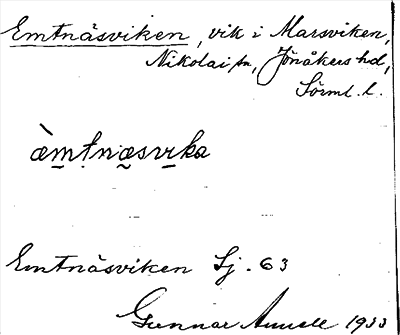 Emtnäsviken, vik i Marsviken,
Nikolai sn, Jönåkers hd,
Sörml. l.
æ̀mtnæsvika
Emtnäsviken Sj. 63
Gunnar 1933